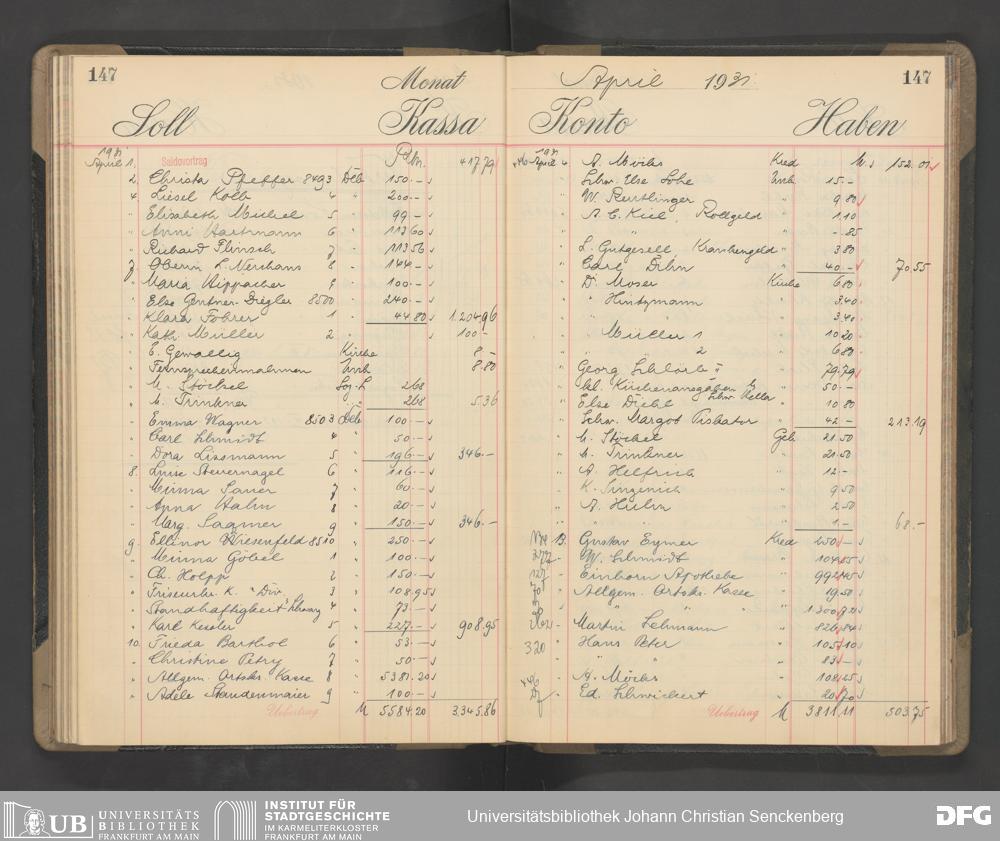 147
Monat
Soll Kassa
1931
April 1. Saldovortrag Rm. 417.79
2. Christa Pfeffer 8493 Deb 150.—
4 Liesel Kolb 4 " 200.—
" Elisabeth Michel 5 " 99.—
" Anni Hartmann 6 " 113.60
" Richard Flinsch 7 " 113.56
7. Oberin L. 8 " 144.—
" Maria Wippacher 9 " 100.—
" Else Gentner-Diegler 8500 " 240.—
" Klara Fohrer 1 " 44.80 1.204.96
" Kath. Müller 2 " 100.—
" E. Gewallig Küche 8.—
" Fernsprecheinnahmen Unk 8.80
" M. Stöckel Soz. L. 2.68
" M. Trinkner " 2.68 5.36
" Emma Wagner 8503 Deb 100.—
" Carl Schmidt 4 " 50.—
" Dora Lissmann 5 " 196.— 346.—
8. Luise Steuernagel 6 " 116.—
" Minna Sauer 7 " 60.—
" Anna Hahn 8 " 20.—
" Marg. Sagmer 9 " 150.— 346.—
9. Ellinor Wiesenfeld 8510 " 250.—
" Minna Göbel 1 " 100.—
" Ch. Holpp 2 " 150.—
" K. 3 " 108.95
" Standhaftigkeit 4 " 73.—
" Karl Kessler 5 " 227.— 908.95
10. Frieda Barthol 6 " 53.—
" Christine Petry 7 " 50.—
" Allgem. Ortskr. Kasse 8 " 5381.20
" Adele Staudenmaier 9 " 100.—
Uebertrag M 5584.20 3.345.86
April 1931
147
Konto Haben
1931
446 April 4. A. Möcks Kred M. 152.01
" Schw. Else Lohe Unk. 15.—
" W. Reutlinger " 9.80
" A. C. Kiel, Rollgeld " 1.10
" " " -.85
" L. Gutgesell Krankengeld " 3.80
" Carl Dihn " 40.— 70.55
" D. Moser Küche 6.80
" " Hintzmann " 3.40
" " " 3.40
" " Müller 1 " 10.20
" " " 2 " 6.80
" Georg " 79.79
" Küchenausgaben " 50.—
" Else Diehl " 10.80
" Schw. Margot Piskator " 42.— 213.19
" M. Stöckel Geh 21.50
" M. Trinkner " 21.50
" A. Helfrich " 12.—
" K. Singenich " 9.50
" A. Huhn " 2.50
" " " 1.— 68.—
Gustav Eymer Kred 250.—
277 " W. Schmidt " 104.55
127 " Einhorn Apotheke " 992.45
70 " Allgem. Ortskr. Kasse " 19.50
" " " " 1300.
" Martin Lehmann " 826.84
320 " Hans Peter " 105.10
" " " 83.—
446 " A. Möcks " 108.45
" Ed. Schwickert " 20.70
Uebertrag M 3811.11 503.75
UB UNIVERSITÄTS
BIBLIOTHEK
FRANKFURT AM MAIN
INSTITUT FÜR
STADTGESCHICHTE
IM KARMELITERKLOSTER
FRANKFURT AM MAIN
Universitätsbibliothek Johann Christian Senckenberg
DFG